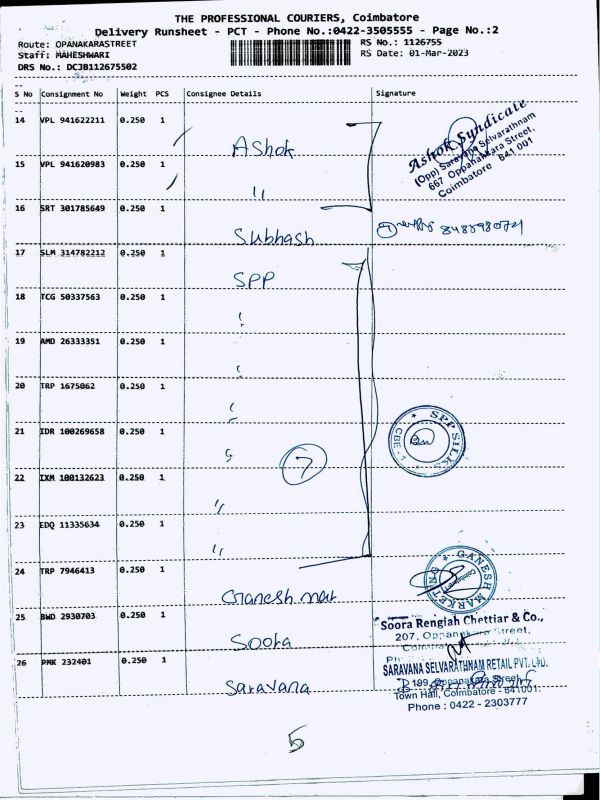 THE PROFESSIONAL COURIERS, Coimbatore
Delivery Runsheet - PCT - Phone No.:0422-3505555 - Page No.:2
Route: OPANAKARASTREET
RS No.: 1126755
Staff: MAHESHWARI
RS Date: 01-Mar-2023
DRS No.: DCJB112675502
S No Consignment No Weight PCS Consignee Details Signature
14 VPL 941622211 0.250 1 Ashok
Ashok Syndicate
(Opp) Saravana Selvarathnam
667 Oppanakkara Street,
Coimbatore 641 001
15 VPL 941620983 0.250 1 "
16 SRT 301785649 0.250 1 Subhash
17 SLM 314782212 0.250 1 SPP
18 TCG 50337563 0.250 1 "
19 AMD 26333351 0.250 1 "
20 TRP 1675062 0.250 1 "
21 IDR 100269658 0.250 1 "
SPP SILKS
CBE - 1
7
22 IXM 100132623 0.250 1 "
23 EDQ 11335634 0.250 1 "
24 TRP 7946413 0.250 1 Ganesh mar
GANESH MARKETING
Coimbatore
25 BWD 2930703 0.250 1 Soora
Soora Rengiah Chettiar & Co.,
207, Oppanakara Street,
26 PMK 232401 0.250 1 Saravana
SARAVANA SELVARATHNAM RETAIL PVT. LTD.
199, Oppanakara Street,
Town Hall, Coimbatore - 641001.
Phone : 0422 - 2303777
5